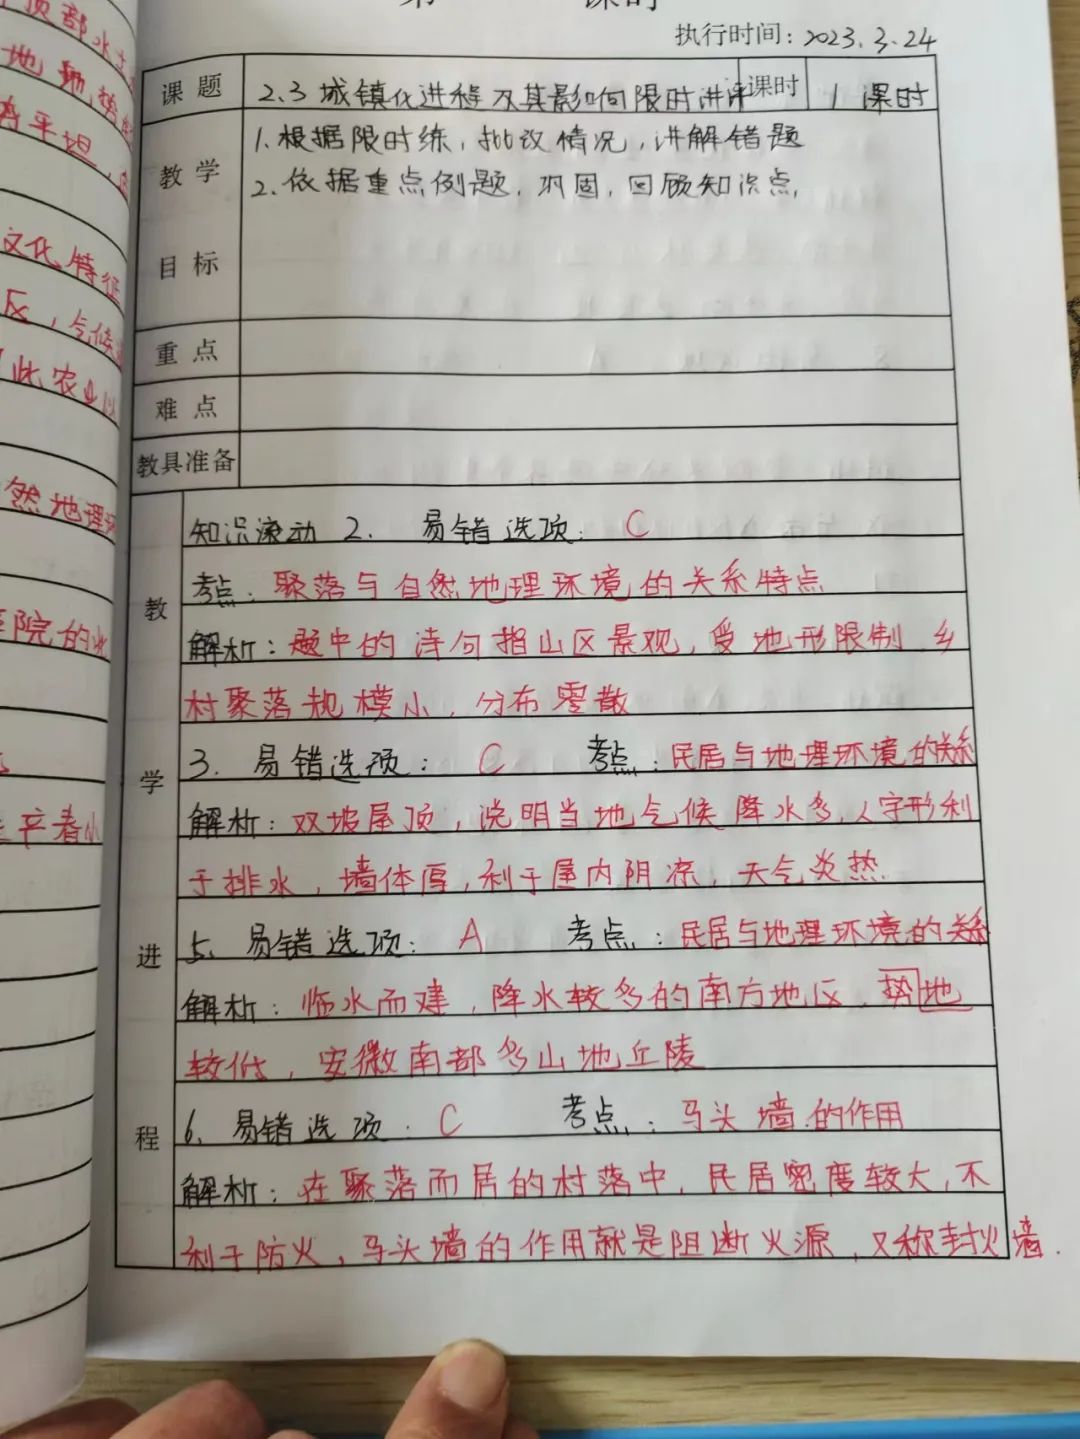 课时
执行时间：2023.3.24
课题 2.3 城镇化进程及其影响限时讲评 课时 1 课时
教学目标
1.根据限时练，批改情况，讲解错题
2.依据重点例题，巩固，回顾知识点，
重点
难点
教具准备
教学进程
知识滚动 2. 易错选项：C
考点：聚落与自然地理环境的关系特点
解析：题中的诗句指山区景观，受地形限制，乡
村聚落规模小，分布零散
3. 易错选项：C 考点：民居与地理环境的关系
解析：双坡屋顶，说明当地气候降水多，人字形利
于排水，墙体厚，利于屋内阴凉，天气炎热.
5、易错选项：A 考点：民居与地理环境的关系
解析：临水而建，降水较多的南方地区，势地
较低，安徽南部多山地丘陵
6、易错选项：C 考点：马头墙的作用
解析：在聚落而居的村落中，民居密度较大，不
利于防火，马头墙的作用就是阻断火源，又称封火墙.
顶部水
地势
平坦，
文化特征
区，气候
此农业以
然地理环
院的